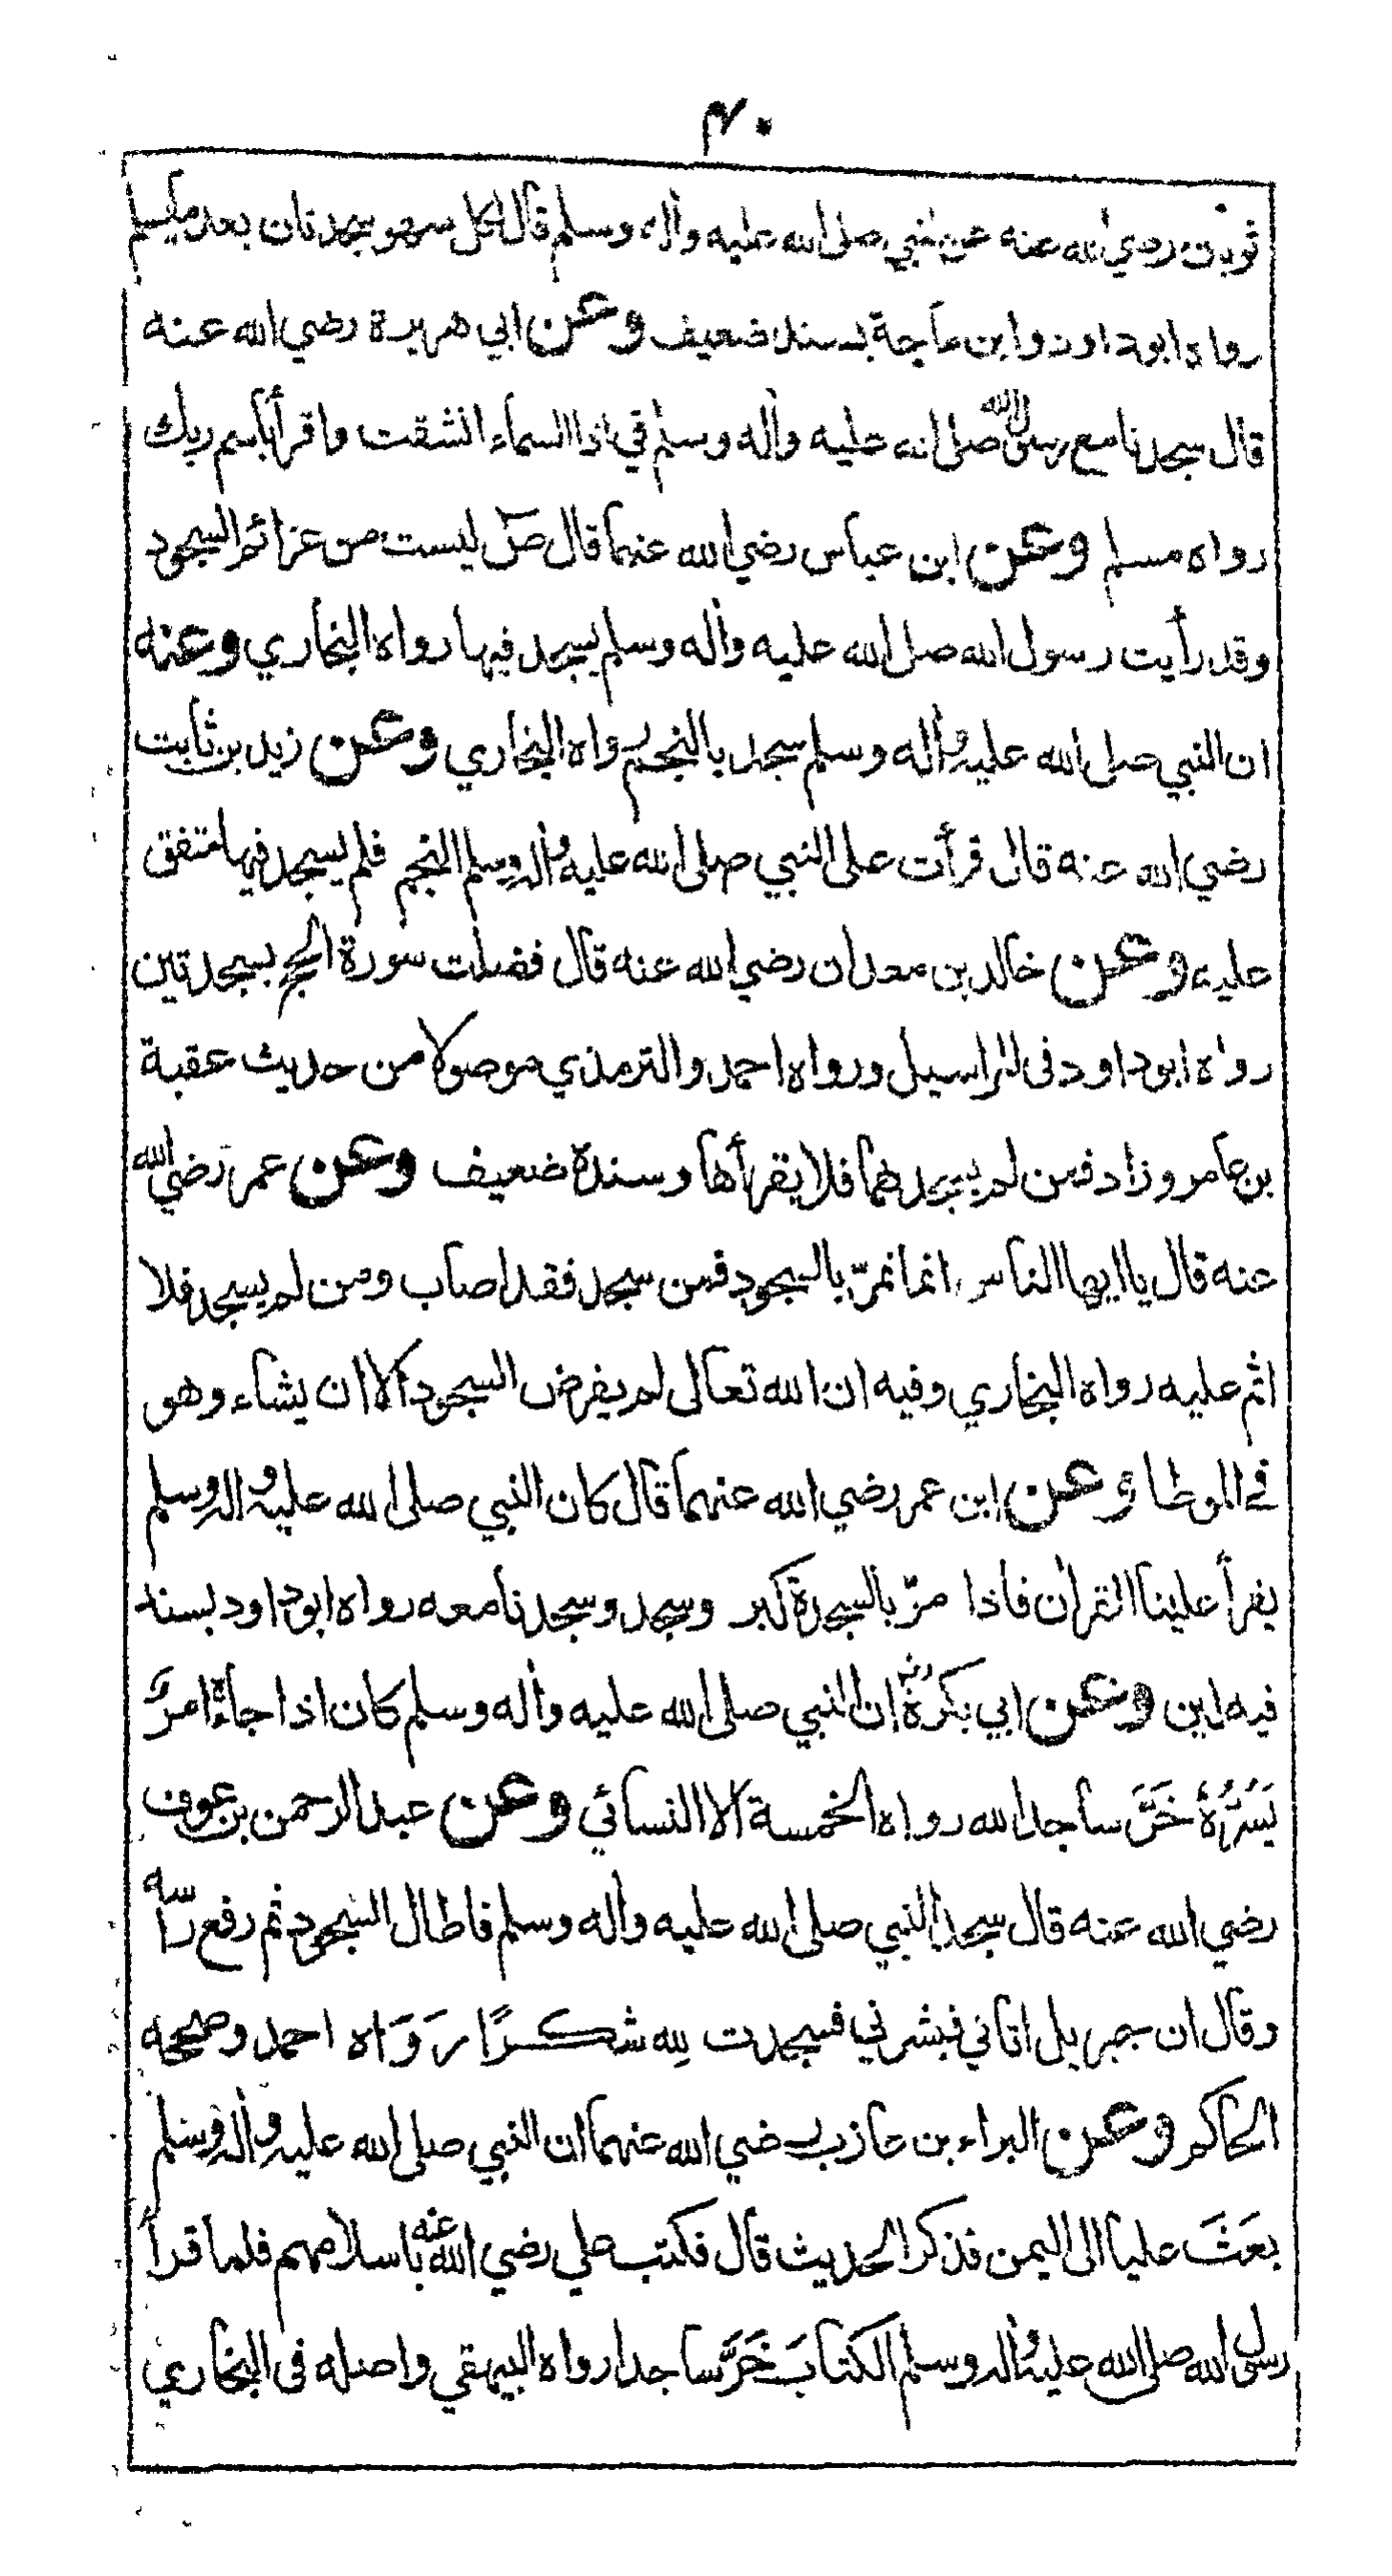 ۴۰
ثوبان رضي الله عنه عن النبي صلى الله عليه وآله وسلم قال لكل سهو سجدتان بعد ما يسلم
رواه ابو داود وابن ماجة بسند ضعيف وعن ابي هريرة رضي الله عنه
قال سجدنا مع رسول الله صلى الله عليه وآله وسلم في اذا السماء انشقت واقرأ باسم ربك
رواه مسلم وعن ابن عباس رضي الله عنهما قال صٓ ليست من عزائم السجود
وقد رأيت رسول الله صلى الله عليه وآله وسلم يسجد فيها رواه البخاري وعنه
ان النبي صلى الله عليه وآله وسلم سجد بالنجم رواه البخاري وعن زيد بن ثابت
رضي الله عنه قال قرأت على النبي صلى الله عليه وآله وسلم النجم فلم يسجد فيها متفق
عليه وعن خالد بن معدان رضي الله عنه قال فضلت سورة الحج بسجدتين
رواه ابو داود فى المراسيل ورواه احمد والترمذي موصولا من حديث عقبة
بن عامر وزاد فمن لم يسجدهما فلا يقرأها وسنده ضعيف وعن عمر رضي الله
عنه قال يا ايها الناس انما نمرّ بالسجود فمن سجد فقد اصاب ومن لم يسجد فلا
اثم عليه رواه البخاري وفيه ان الله تعالى لم يفرض السجود الا ان يشاء وهو
في الموطا وعن ابن عمر رضي الله عنهما قال كان النبي صلى الله عليه وآله وسلم
يقرأ علينا القرآن فاذا مرّ بالسجدة كبر وسجد وسجدنا معه رواه ابو داود بسند
فيه لين وعن ابي بكرة رضـ ان النبي صلى الله عليه وآله وسلم كان اذا جاءه امرٌ
يَسُرُّهُ خَرَّ ساجدا لله رواه الخمسة الا النسائي وعن عبد الرحمن بن عوف
رضي الله عنه قال سجد النبي صلى الله عليه وآله وسلم فاطال السجود ثم رفع رأسه
وقال ان جبريل اتاني فبشرني فسجدت لله شكرًا رَوَاه احمد وصححه
الحاكم وعن البراء بن عازب رضي الله عنهما ان النبي صلى الله عليه وآله وسلم
بعَثَ عليا الى اليمن فذكر الحديث قال فكتب علي رضي الله عنه باسلامهم فلما قرأ
رسول الله صلى الله عليه وآله وسلم الكتابَ خَرَّ ساجدا رواه البيهقي واصله فى البخاري